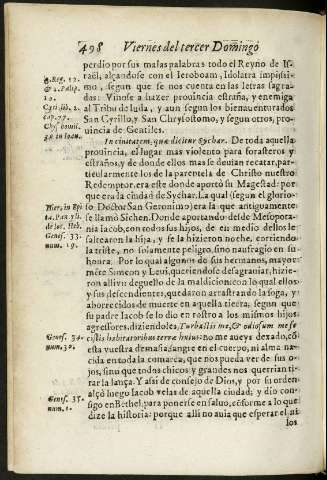 498 Viernes del tercer Domingo
perdio por sus malas palabras todo el Reyno de Is-
3. Reg. 12.
raël, alçandose con el Ieroboam, Idolatra impissi-
& 2. Palip.
mo, segun que se nos cuenta en las letras sagra-
10.
das: Vinose a hazer prouincia estraña, y enemiga
Cyri. lib. 2.
al Tribu de Iuda, y aun segun los bienauenturados
cap. 77.
San Cyrillo, y San Chrysostomo, y segun otros, pro-
Chy. homil.
uincia de Gentiles.
30. in Ioan.
In ciuitatem, quæ dicitur Sychar. De toda aquella
prouincia, el lugar mas violento para forasteros y
estraños, y de donde ellos mas se deuian recatar, par-
ticularmente los de la parentela de Christo nuestro
Redemptor, era este donde aportó su Magestad: por
que era la ciudad de Sychar. La qual (segun el glorio-
Hier, in Epi
so Doctor San Geronimo) era la que antiguamente
ta. Pau. & li.
se llamó Sichen. Donde aportando el de Mesopota-
de loc. Heb.
nia Iacob, con todos sus hijos, de en medio dellos le
Genes. 33.
saltearon la hija, y se la hizieron noche, corriendo
num. 19.
la triste, no solamente peligro, sino naufragio en su
honra. Por lo qual algunos de sus hermanos, mayor-
mēte Simeon y Leui, queriendose desagrauiar, hizie-
ron alli vn deguello de la maldicion: con lo qual ellos
y sus descendientes, quedaron arrastrando la soga, y
aborrecidos de muerte en aquella tierra, segun que
su padre Iacob se lo dio en rostro a los mismos hijos
agressores, diziendoles, Turbastis me, & odiosum me fe-
Genes. 34.
cistis habitatoribus terræ huius: no me aueys dexado, cō
num. 30.
esta vuestra demasia, sangre en el cuerpo, ni alma na-
cida en toda la comarca, que nos pueda ver de sus o-
jos, sinu que todos chicos y grandes nos querrian ti-
rar la lança. Y assi de consejo de Dios, y por su orden
Genes. 35.
alçó luego Iacob velas de aquella ciudad; y dio con-
num. 1.
sigo en Bethel, para ponerse en saluo, cōforme a lo que
dize la historia: porque alli no auia que esperar el ni
los